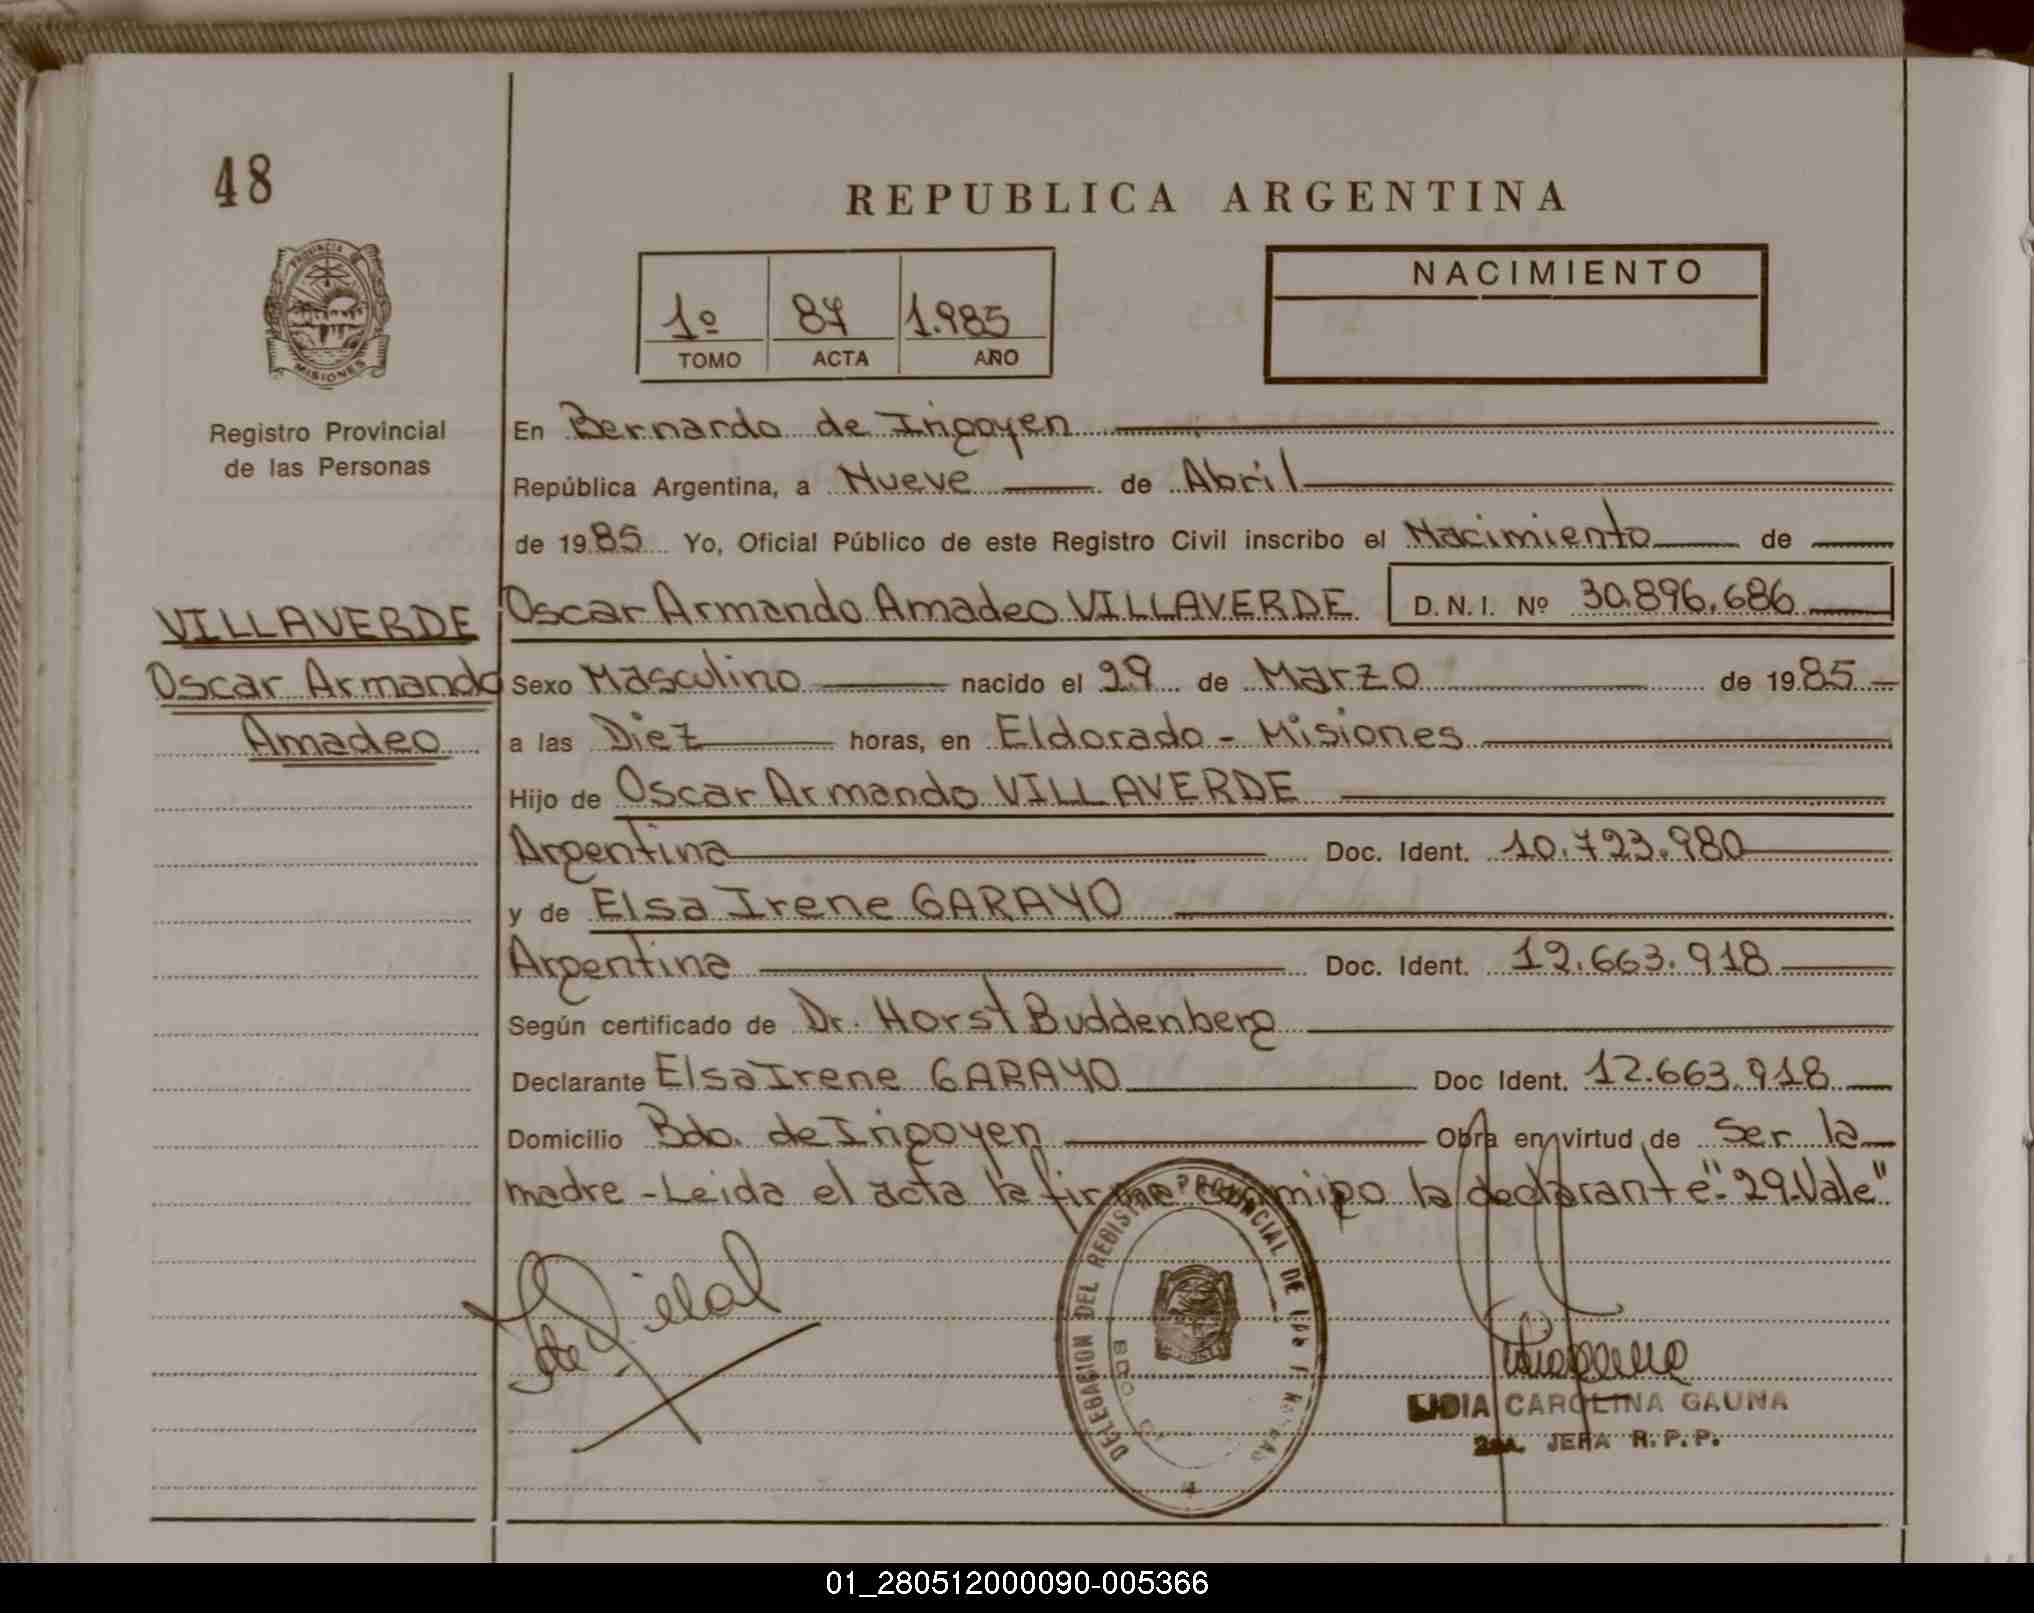 48
REPUBLICA ARGENTINA
PROVINCIA DE
MISIONES
Registro Provincial
de las Personas
1º 87 1.985
TOMO ACTA AÑO
NACIMIENTO
En Bernardo de Irigoyen
República Argentina, a Nueve de Abril
de 1985 Yo, Oficial Público de este Registro Civil inscribo el Nacimiento de
VILLAVERDE
Oscar Armando
Amadeo
Oscar Armando Amadeo VILLAVERDE D.N.I. Nº 30.896.686
Sexo Masculino nacido el 29 de Marzo de 1985
a las Diez horas, en Eldorado - Misiones
Hijo de Oscar Armando VILLAVERDE
Argentina Doc. Ident. 10.723.980
y de Elsa Irene GARAYO
Argentina Doc. Ident. 12.663.918
Según certificado de Dr. Horst Buddenberg
Declarante Elsa Irene GARAYO Doc Ident. 12.663.918
Domicilio Bdo. de Irigoyen Obra en virtud de Ser la
madre - Leida el acta la firma conmigo la declarante "29-Vale"
DELEGACION DEL REGISTRO PROVINCIAL DE
LIDIA CAROLINA GAUNA
2da. JEFA R.P.P.
01_280512000090-005366